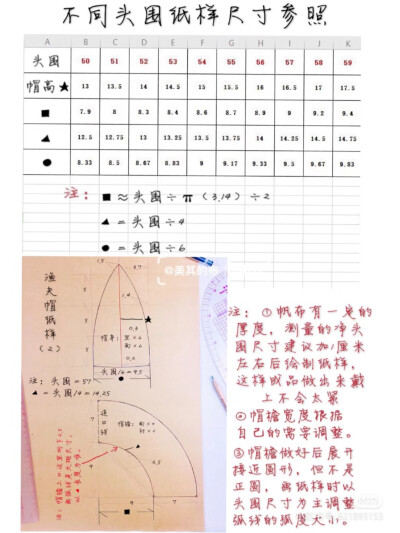 不同头围纸样尺寸参照
A B C D E F G H I J K
头围 50 51 52 53 54 55 56 57 58 59
帽高★ 13 13.5 14 14.5 15 15.5 16 16.5 17 17.5
■ 7.9 8 8.3 8.4 8.6 8.7 8.9 9 9.2 9.4
▲ 12.5 12.75 13 13.25 13.5 13.75 14 14.25 14.5 14.75
● 8.33 8.5 8.67 8.83 9 9.17 9.33 9.5 9.67 9.83
注: ■≈头围÷π(3.14)÷2
▲=头围÷4
●=头围÷6
渔夫帽纸样
(2)
0.7
1.4
0.6
帽身:
头围/6=9.5
注: 头围=57
▲=头围/4=14.25
帽檐:
6.5
7
注: ①帆布有一定的
厚度,测量的净头
围尺寸建议加1厘米
左右后绘制纸样,
这样成品做出来戴
上不会太紧
②帽檐宽度根据
自己的需要调整。
③帽檐做好后展开
接近圆形,但不是
正圆,画纸样时以
头围尺寸为主调整
弧线的弧度大小。